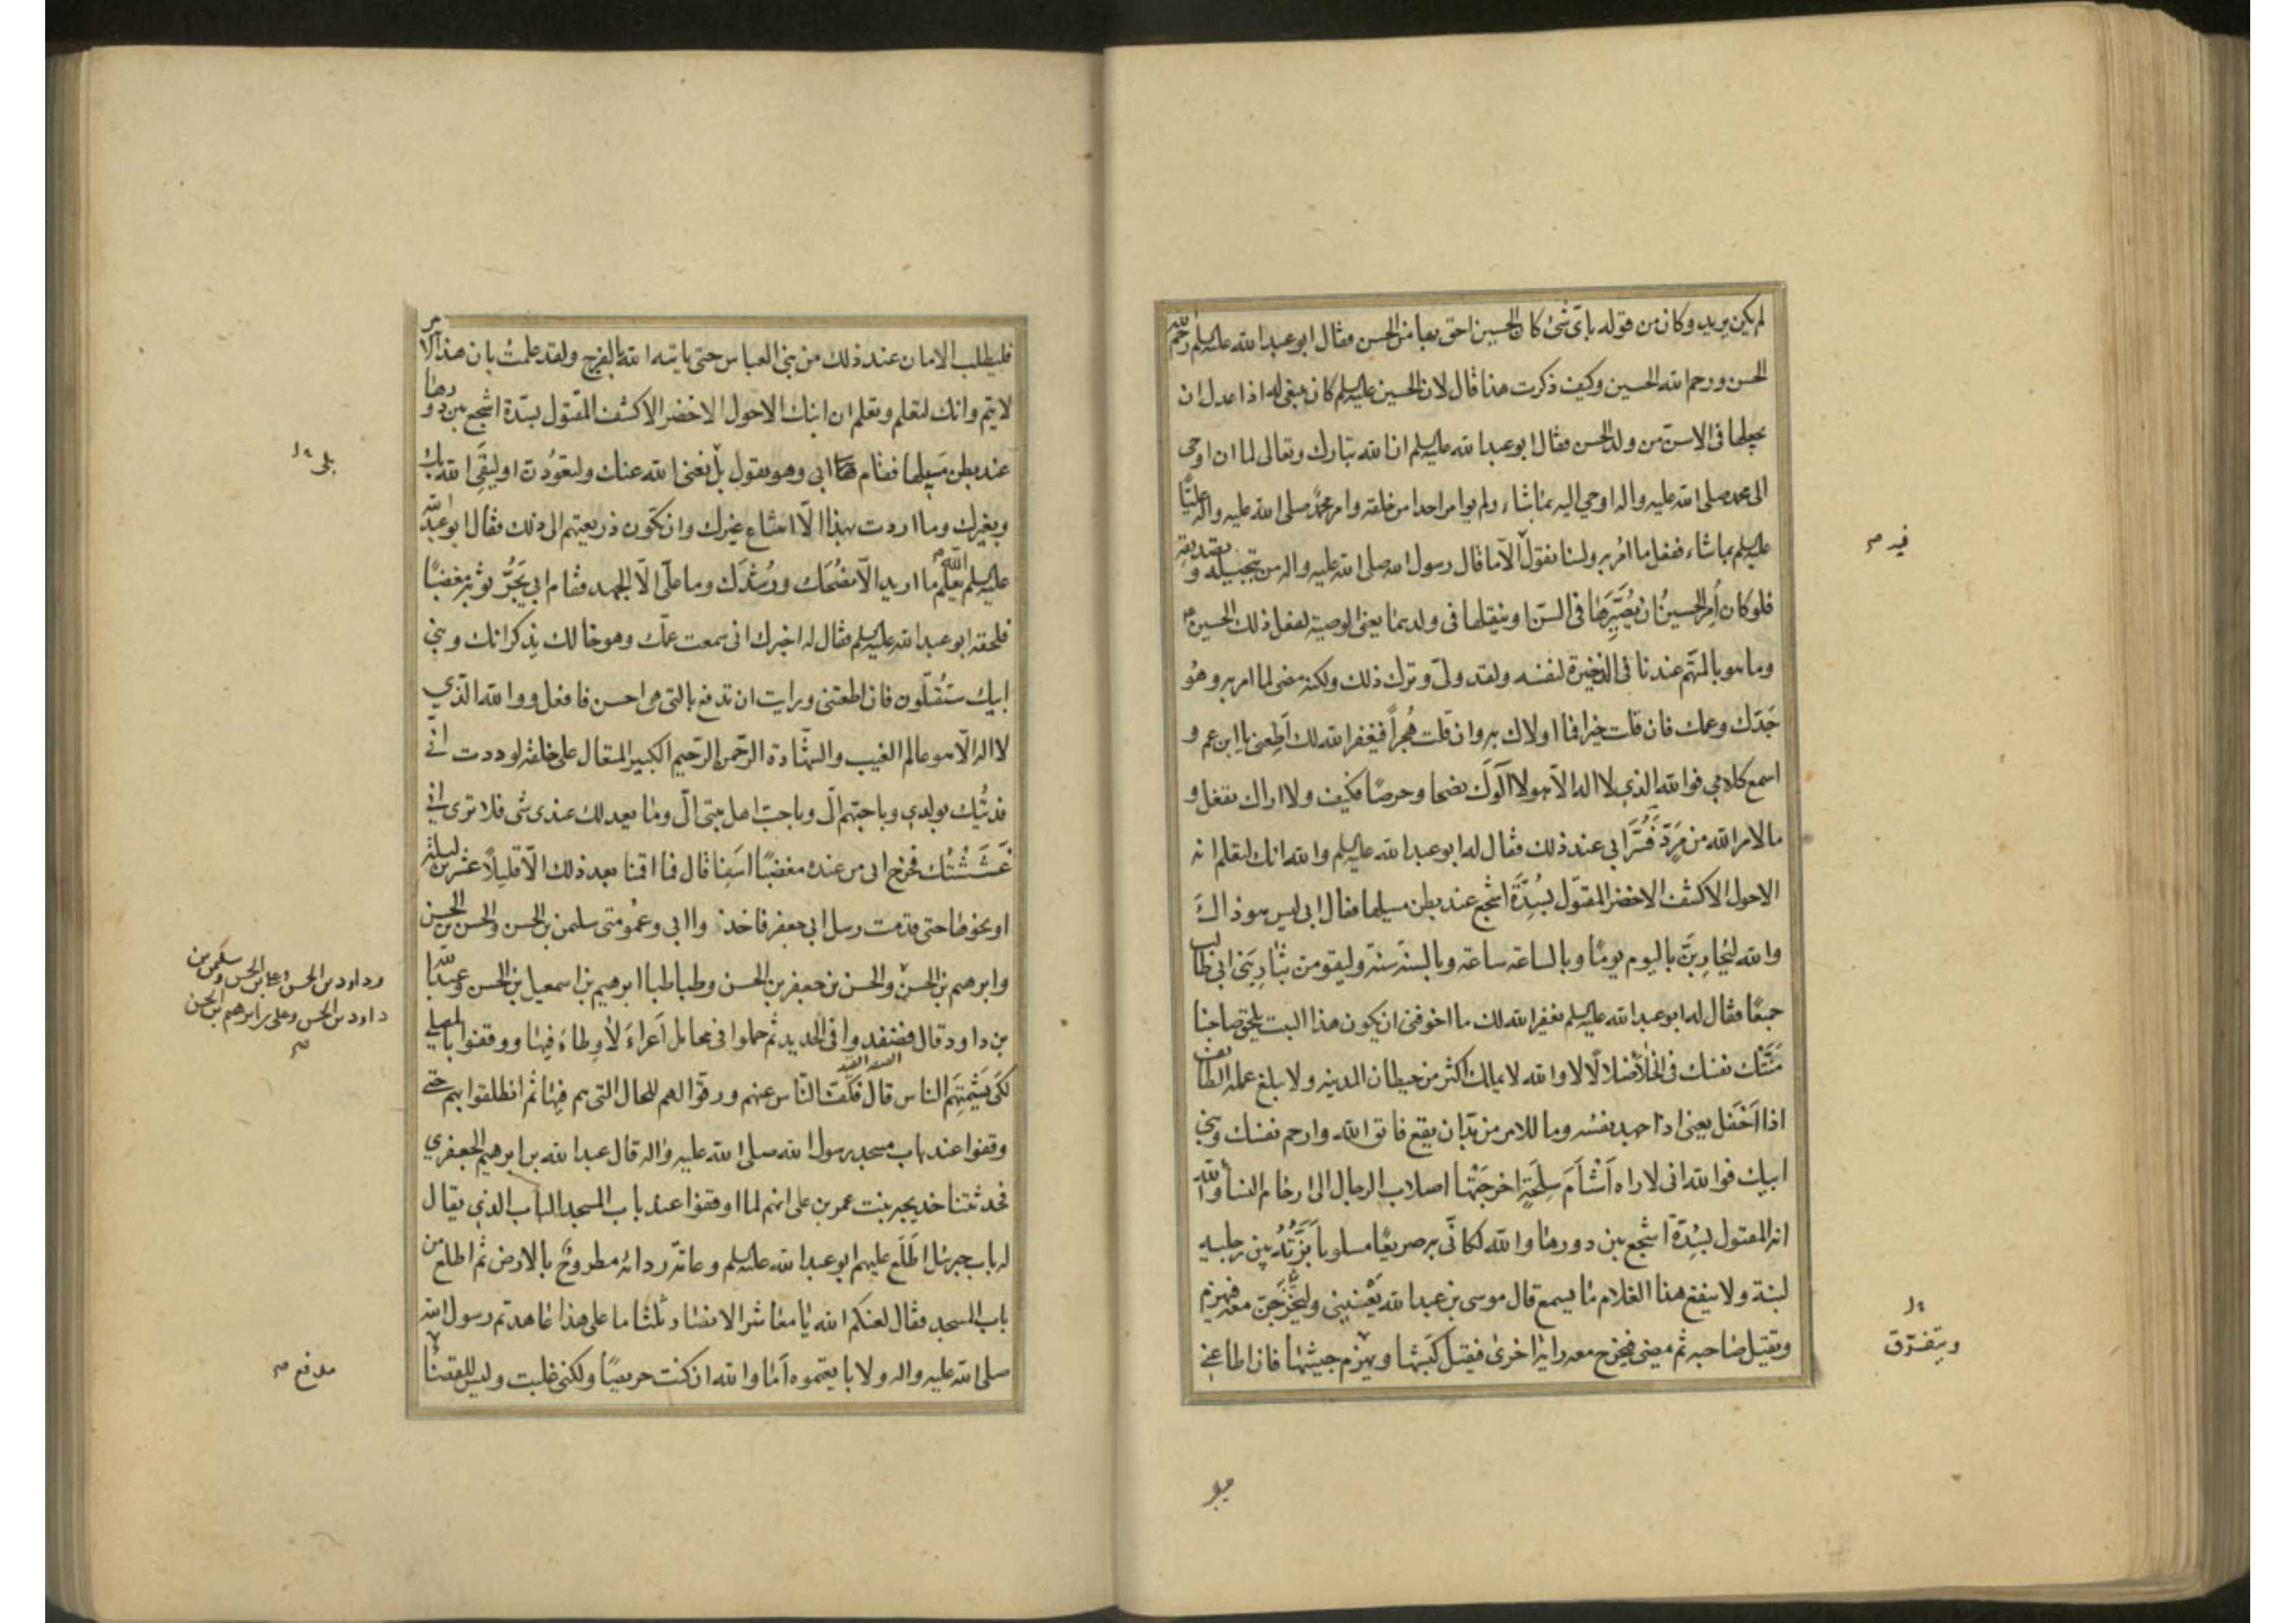 لم يكن يريد وكان من قوله باىّ شئ كان الحسين احق بها من الحسن فقال ابو عبد الله عليه السلم رحم الله
الحسن ورحم الله الحسين وكيف ذكرت هذا قال لان الحسين عليه السلم كان ينبغى له اذا عدل ان
يجعلها فى الاسنّ من ولد الحسن فقال ابو عبد الله عليه السلم ان الله تبارك وتعالى لما ان اوحى
الى محمد صلى الله عليه واله اوحى اليه بما شاء ولم يوامر احدا من خلقه وامر محمد صلى الله عليه واله عليًّا
عليه السلم بما شاء ففعل ما امُر به ولسنا نقول فيه الّا ما قال رسول الله صلى الله عليه واله من تبجيله وتصديقه
فلو كان اُمِرَ الحسينُ ان يُصَيِّرَها فى السنّ او ينقلها فى ولدهما يعنى الوصية لفعل ذلك الحسين
وما هو بالمتّهم عندنا فى الذخيرة لنفسه ولقد ولّى وترك ذلك ولكنه مضى لما امر به وهُو
جَدّك وعمك فان قلت خيرا فما اولاك به وان قلت هُجراً فيغفر الله لك اَطِعنى يا ابن عم و
اسمع كلامى فوالله الذى لا اله الّا هو لا آلوك نصحا وحرصًا فكيف ولا اراك تفعل و
ما لامر الله من مَرَدّ فَسُرَّ ابى عند ذلك فقال له ابو عبد الله عليه السلم والله انك لتعلم انه
الاحول الاكشف الاخضر المقتول بسُدَّةَ اشجع عند بطن مسيلها فقال ابى ليس هو ذاك
والله ليُحارِبَنَّ باليوم يومًا وبالساعة ساعة وبالسنة سنة وليقومن بثار بَنى ابى طالب
جميعًا فقال له ابو عبد الله عليه السلم يغفر الله لك ما اخوفنى ان يكون هذا البيت يلحق صاحبنا
مَنّتْك نفسك فى الخلأ ضلالًا لا والله لا يملك اكثر من حيطان المدينه ولا يبلغ عمله الطائف
اذا اَحْفَل يعنى اذا جهد نفسُه وما للامر من بدّ ان يقع فاتق الله وارحم نفسك وبنى
ابيك فوالله انى لاراه اَشْأَمَ سلحَةٍ اخرجَتْها اصلاب الرجال الى ارحام النسأ والله
انه المقتول بسُدّة اشجع بين دورها والله لكانّى به صريعًا مسلوباً بَزَّتُه بين رجليه
لبنة ولا ينفع هذا الغلام ما يسمع قال موسى بن عبد الله يَعْنينى وليَخْرُجَنّ معه فيُهزم
ويقتل صاحبه ثم يمضى فيخرج معه راية اخرى فيقتل كَبشَها ويتفرّق جيشها فان اطاعنى
فليطلب الامان عند ذلك من بنى العباس حتى ياتيه الله بالفرج ولقد علمتُ بان هذا الامر
لا يتم وانك لتعلم ونعلم ان ابنك الاحول الاخضر الاكشف المقتول بسدّة اشجع بين دورها
عند بطن مَسيلها فقام ابى وهو يقول بل يغنى الله عنك ولتعُودَن او ليقى الله بك
وبغيرك وما اردت بهذا الّا امتناع غيرك وان تكون ذريعتهم الى ذلك فقال ابو عبد الله
عليه السلم الله يعلم ما اريد الّا نصُحَك ورُشدَك وما علّى الّا الجهد فقام ابى يَجُرُّ ثوبه مغضبًا
فلحقه ابو عبد الله عليه السلم فقال له اخبرك انى سمعت عمّك وهو خالك يذكر انك وبنى
ابيك ستُقتَلون فان اطعتنى ورايت ان تدفع بالتى هى احسن فافعل ووالله الذّي
لا اله الّا هو عالم الغيب والشهادة الرّحمن الرّحيم الكبير المتعال على خلقه لوددت انّى
فديتُك بولدي وباحبّهم الىّ وباحبّ اهل بيتى الىّ وما يعدلك عندى شئ فلا ترى انى
غَشَشْتُك فخرج ابى من عنده مغضبًا اَسِفا قال فما اقمنا بعد ذلك الّا قليلًا عشرين ليلة
او نحوها حتى قدمت رسل ابى جعفر فاخذوا ابى وعمومتى سليمن بن الحسن والحسن بن الحسن
وابرهيم بن الحسن والحسن بن جعفر بن الحسن وطباطبا ابرهيم بن اسمعيل بن الحسن وعبد الله
بن داود قال فصُفدوا فى الحديد ثم حملوا فى محامل اَعراءَ لا وطاءَ فيها ووقفوا بالمصلى
لكَى يَشْمتِهَم الناس قال فكَفّ النّاس عنهم ورقّوا لهم للحال التى هم فيها ثم انطلقوا بهم حتى
وقفوا عند باب مسجد رسول الله صلى الله عليه واله قال عبد الله بن ابرهيم الجعفري
فحدثتنا خديجه بنت عمر بن على انهم لما اوقفوا عند باب المسجد الباب الذي يقال
له باب جبرئيل اطَّلَع عليهم ابو عبد الله عليه السلم وعامّة ردائه مطروحٌ بالارض ثم اطلع من
باب المسجد فقال لعنكم الله يا معاشر الانصار ثلثا ما على هذا عاهدتم رسول الله
صلى الله عليه واله ولا بايعتموه اَما والله ان كنت حريصًا ولكنى غلبت وليس للقضأ
فيه صح
ويتفرّق
بلى
وداود بن الحسن وعلى بن الحسن وسليمن بن
داود بن الحسن وعلى بن ابرهيم بن الحسن
صح
مدفع صح